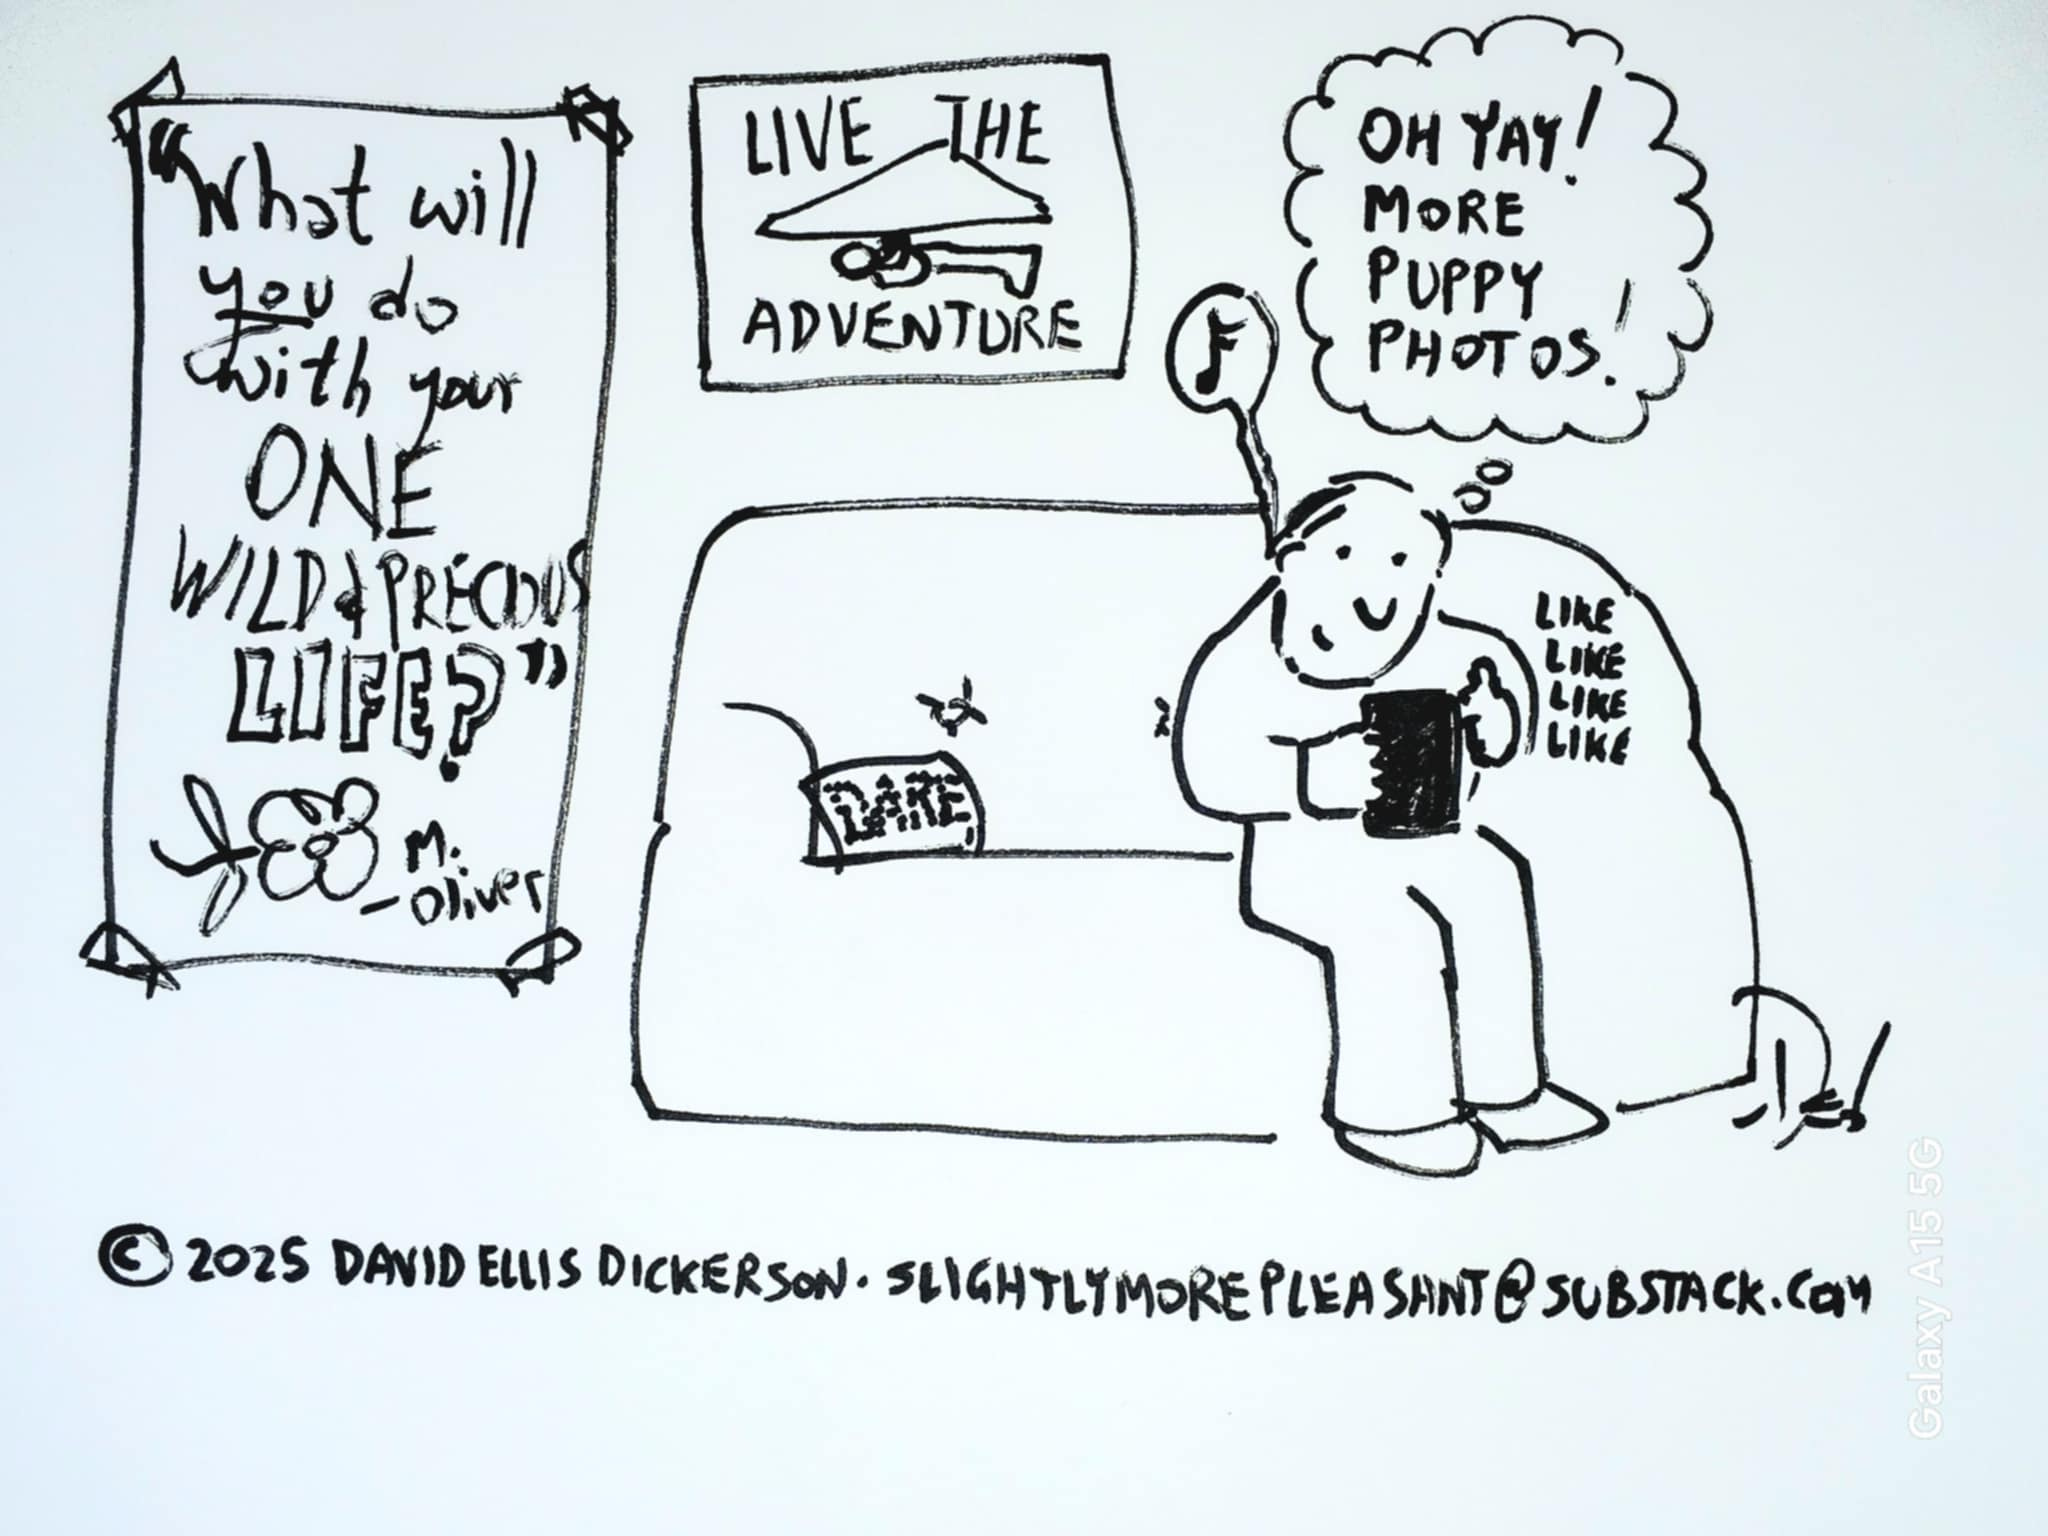 "What will
you do
with your
ONE
WILD & PRECIOUS
LIFE?"
M.
-Oliver
LIVE THE
ADVENTURE
OH YAY!
MORE
PUPPY
PHOTOS!
LIKE
LIKE
LIKE
LIKE
DARE
© 2025 DAVID ELLIS DICKERSON. SLIGHTLYMOREPLEASANT@SUBSTACK.COM
Galaxy A15 5G